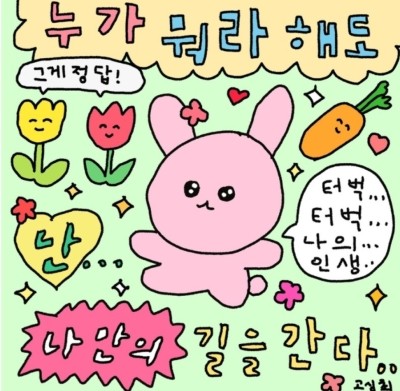 누가 뭐라 해도
그게 정답!
난...
터벅...
터벅...
나의...
인생..
나만의 길을 간다..